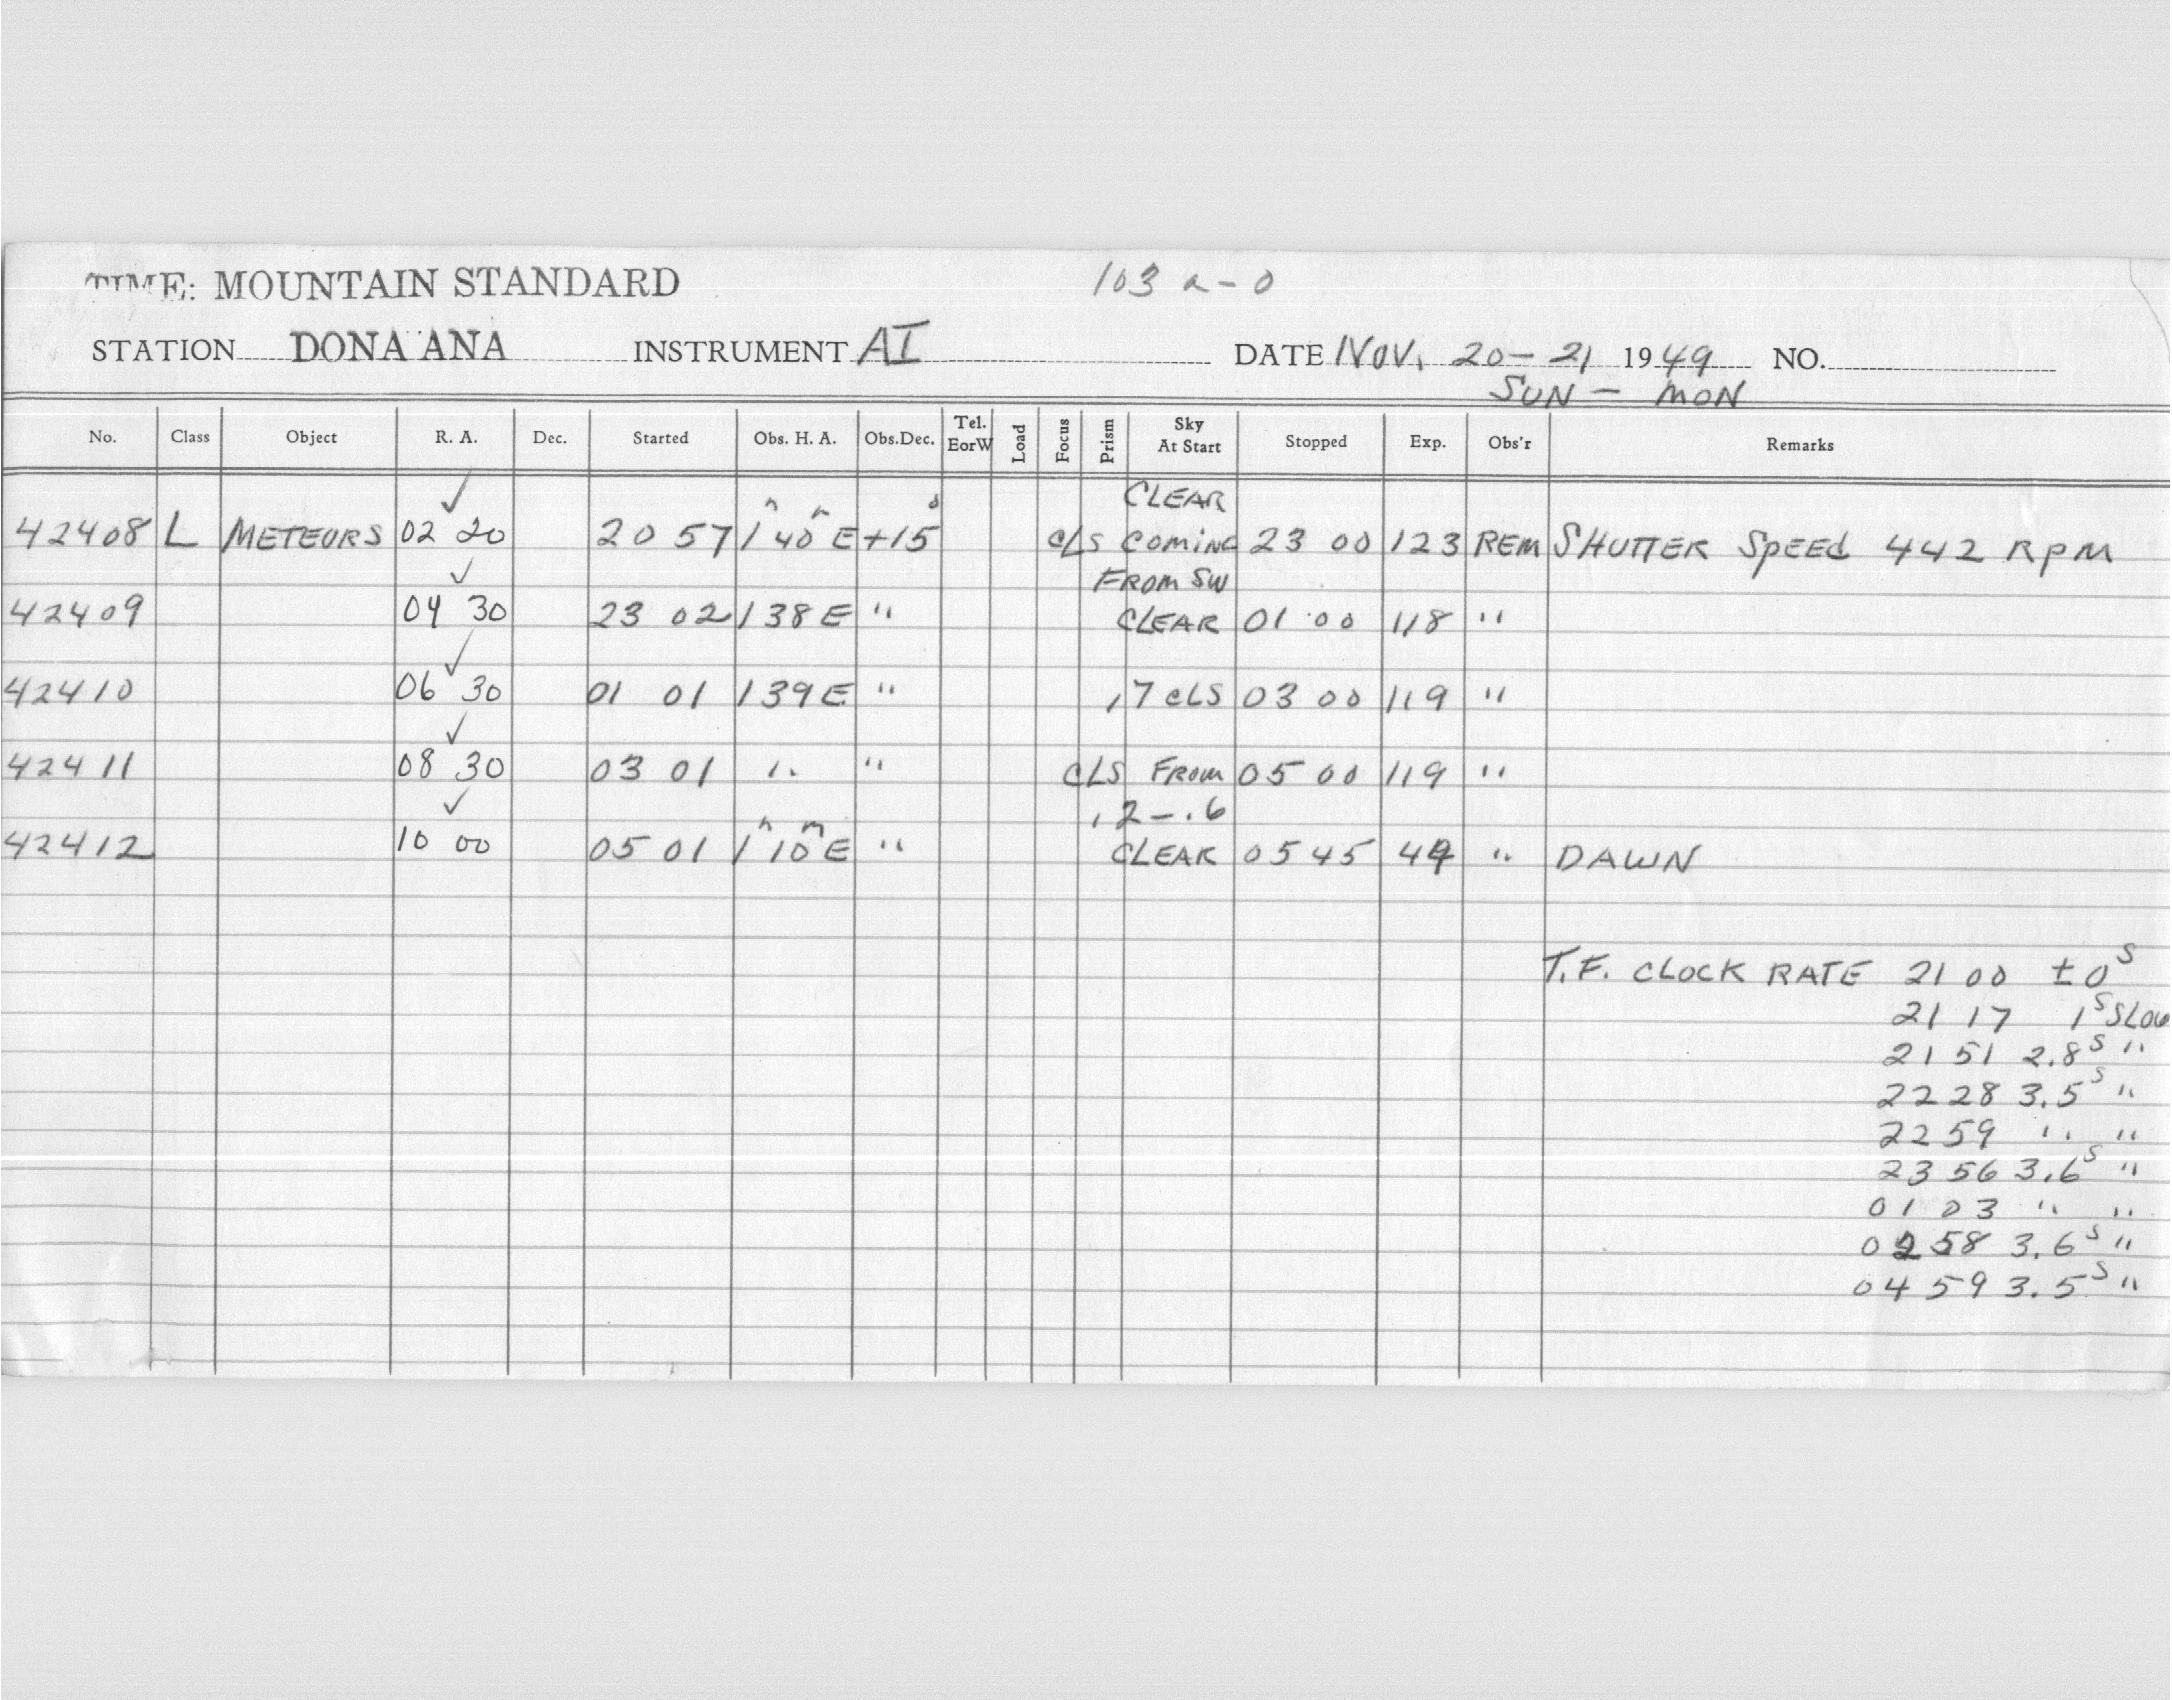 TIME: MOUNTAIN STANDARD 103 a-0
STATION DONA ANA INSTRUMENT AI DATE NOV. 20-21 1949 NO.
SUN - MON
No. Class Object R. A. Dec. Started Obs. H. A. Obs.Dec. Tel. EorW Load Focus Prism Sky At Start Stopped Exp. Obs'r Remarks
CLEAR
42408 L METEORS 02 20 20 57 1h 40m E +15° CLS COMING 23 00 123 REM SHUTTER SPEED 442 RPM
FROM SW
42409 04 30 23 02 1 38 E " CLEAR 01 00 118 "
42410 06 30 01 01 1 39 E " .7 CLS 03 00 119 "
42411 08 30 03 01 " " CLS FROM 05 00 119 "
.2-.6
42412 10 00 05 01 1h 10m E " CLEAR 05 45 44 " DAWN
T.F. CLOCK RATE 21 00 ±0s
21 17 1s SLOW
21 51 2.8s "
22 28 3.5s "
22 59 " "
23 56 3.6s "
01 03 " "
02 58 3.6s "
04 59 3.5s "